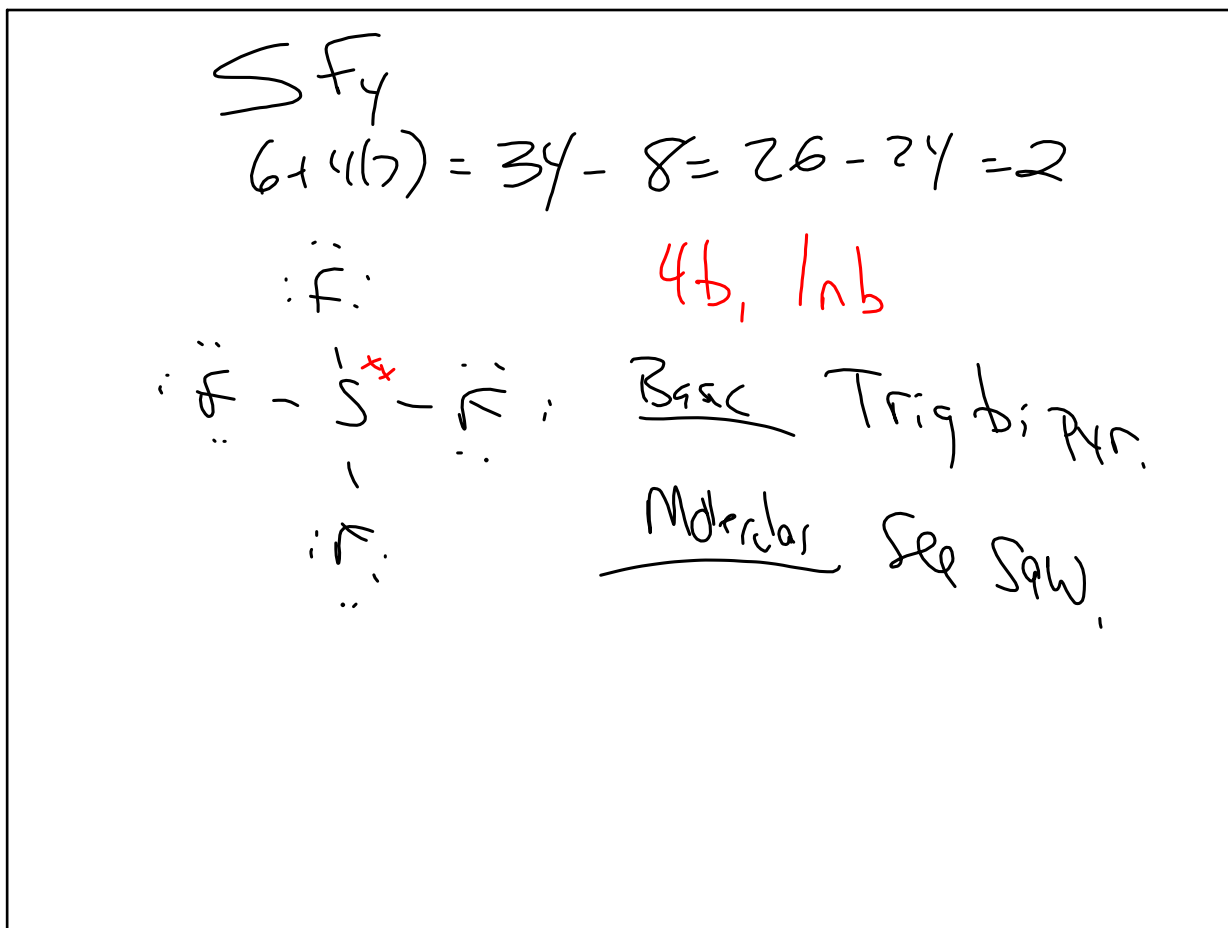 SF4
6+4(7) = 34 - 8 = 26 - 24 = 2
4b, 1nb
:F:
:F - S - F:
:F:
Basic Trig bi pyr.
Molecular See Saw.